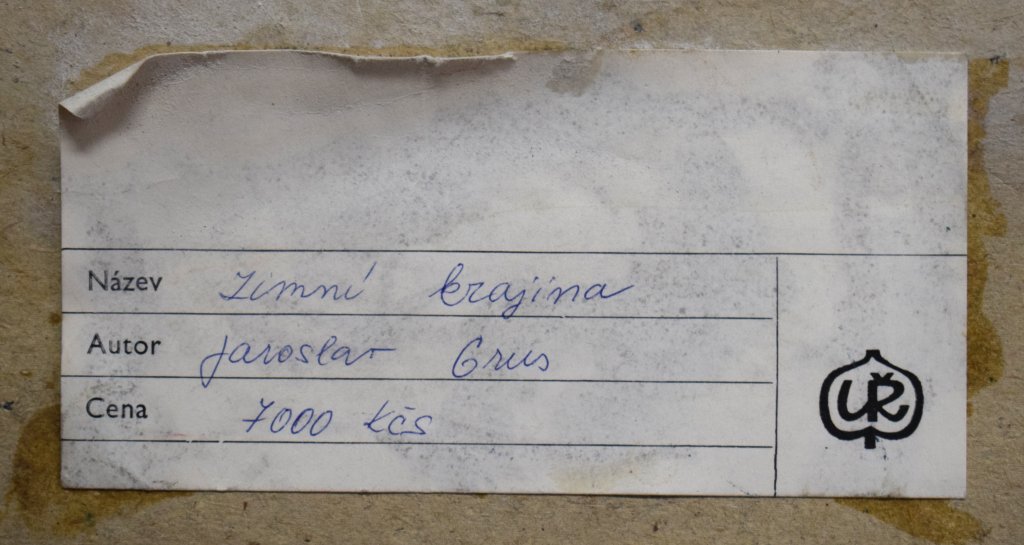 Název Zimní krajina
Autor Jaroslav Grus
Cena 7000 kčs
UŘ